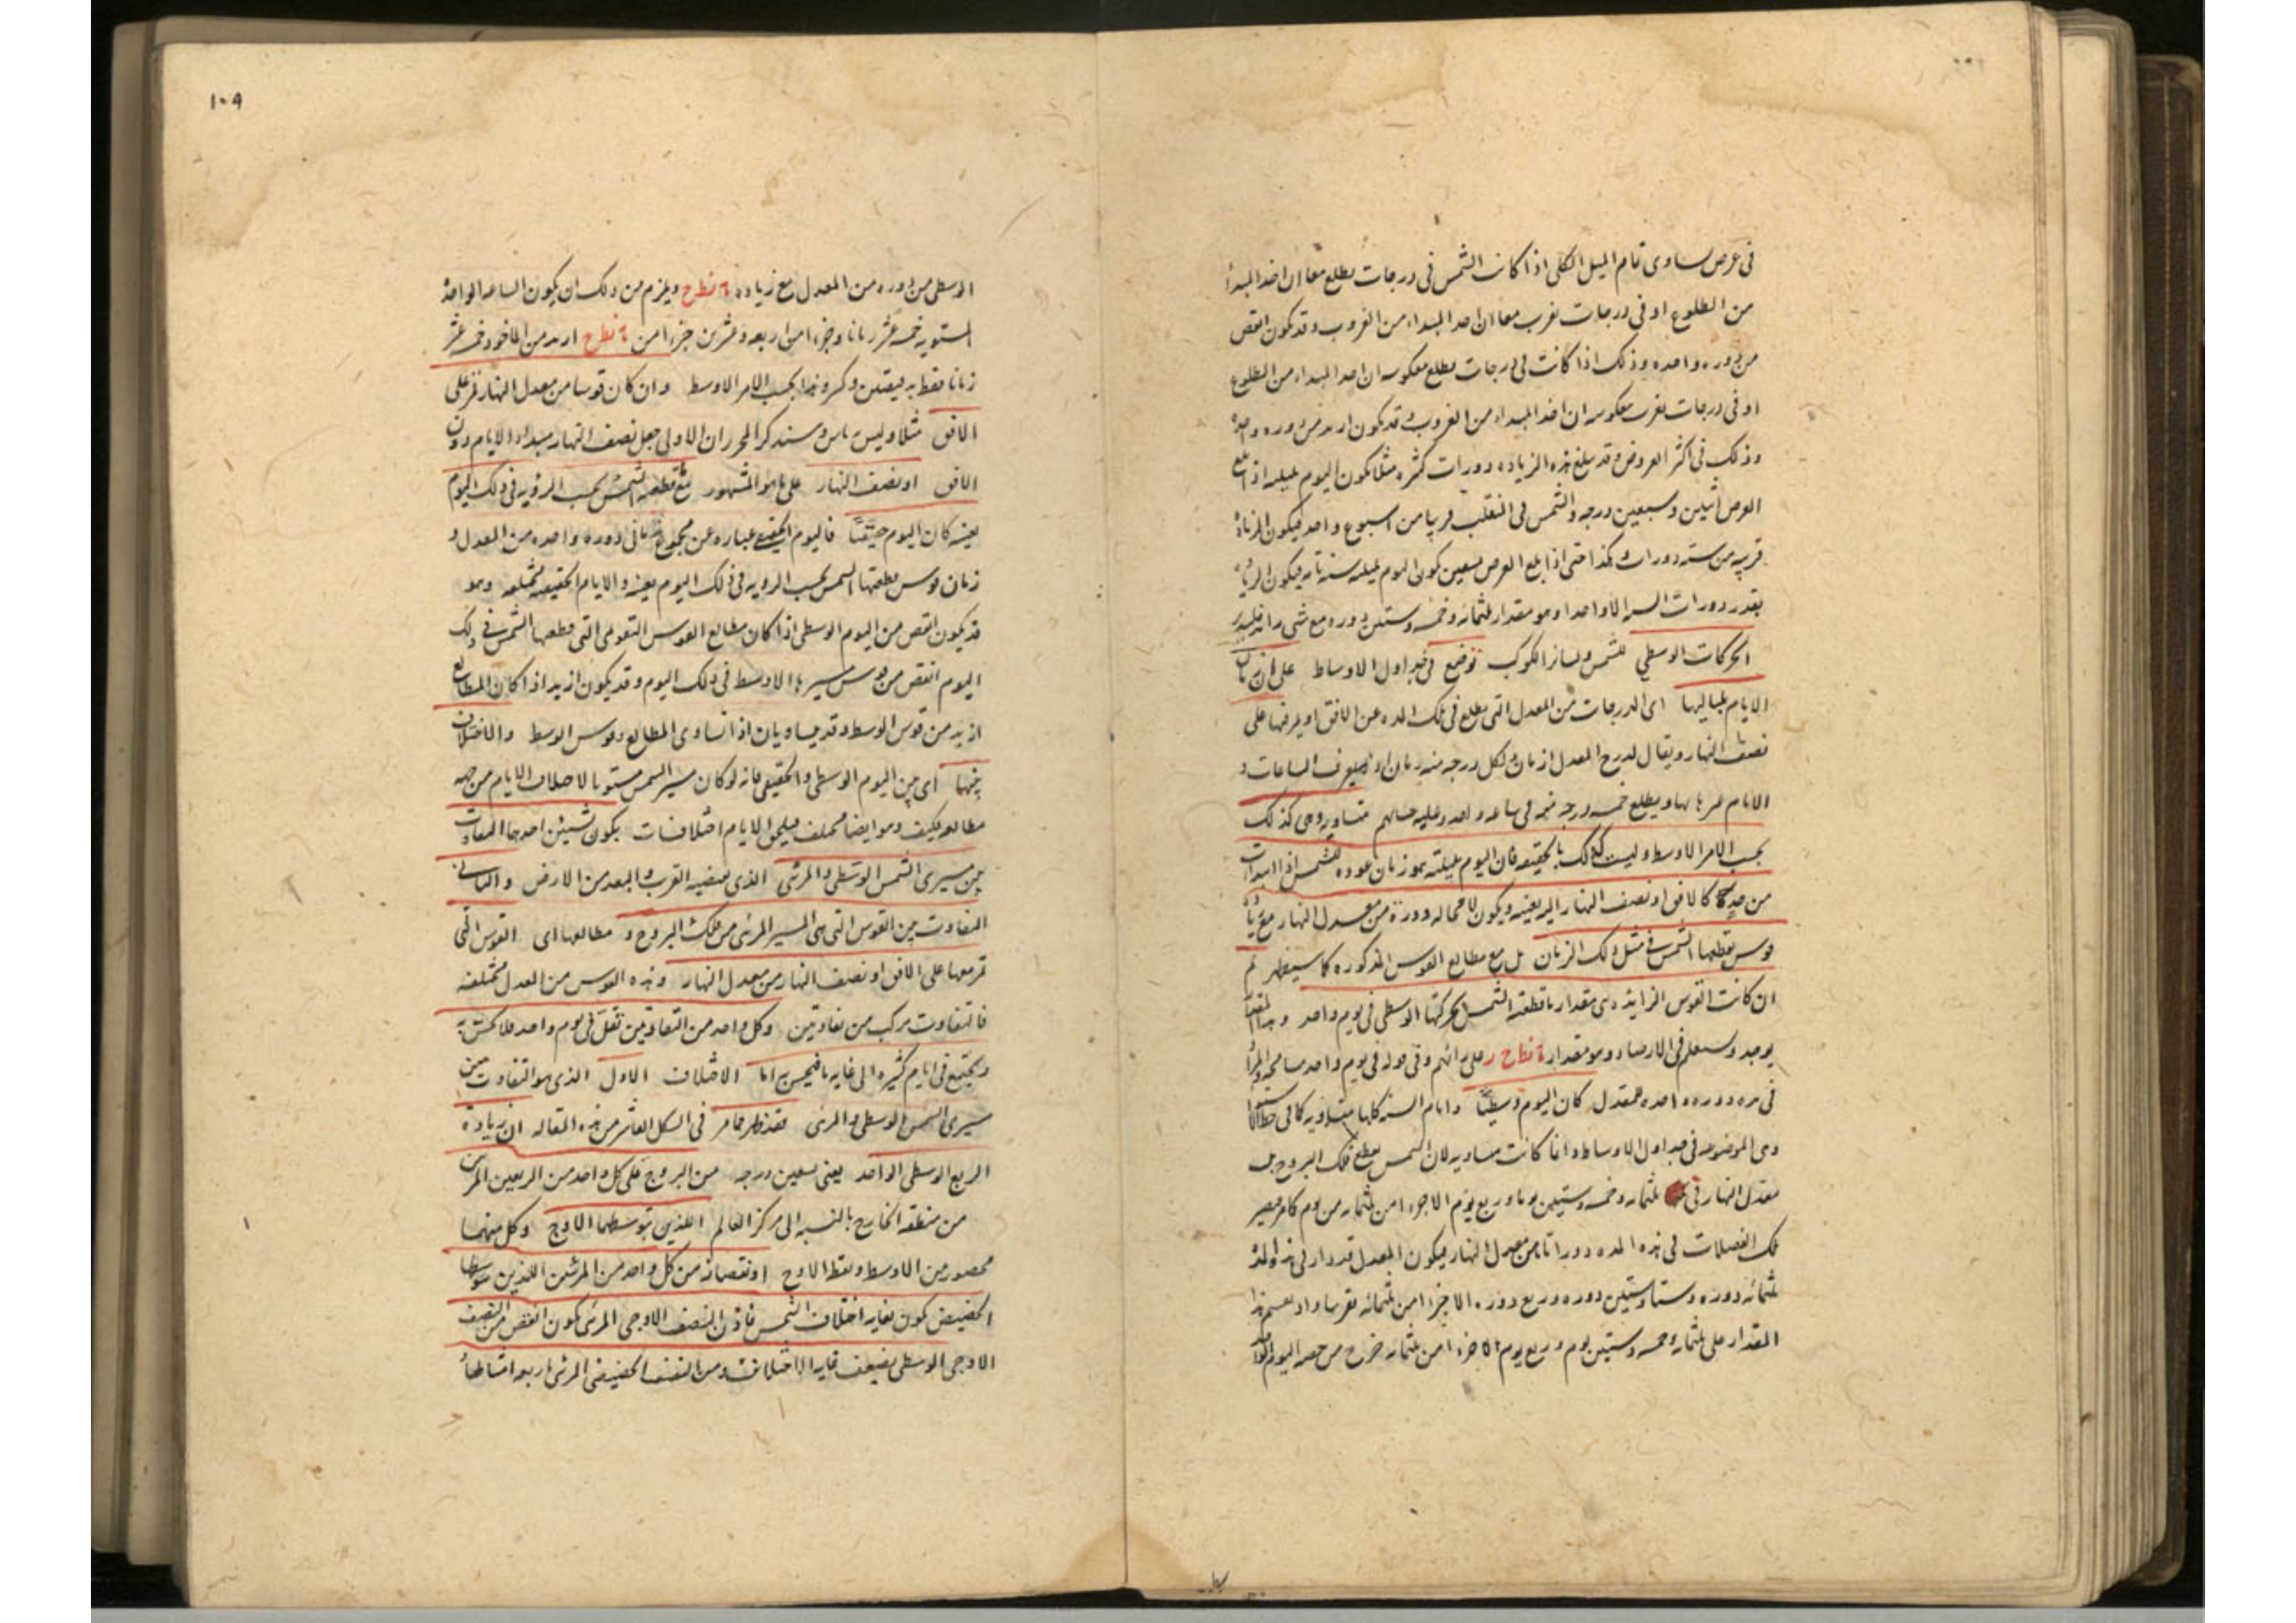 في عرض يساوي تمام الميل الكلي اذا كانت الشمس في درجات يطلع معا ان اخذ المبدأ
من الطلوع او في درجات تغرب معا ان اخذ المبداء من الغروب وقد يكون انقص
من دوره واحده وذلك اذا كانت في درجات تطلع معكوسه ان اخذ المبداء من الطلوع
او في درجات تغرب معكوسه ان اخذ المبداء من الغروب وقد يكون ازيد من دوره واحدة
وذلك في اكثر العروض وقد يبلغ هذه الزياده دورات كثيره مثلا يكون اليوم بليله اذا بلغ
العرض اثنين وسبعين درجه والشمس في المنقلب قريبا من اسبوع واحد فيكون الزيادة
قريبه من سته دورات وهكذا حتى اذا بلغ العرض تسعين يكون اليوم بليله سنة تامه فيكون الزيادة
بقدر دورات السنه الا واحدا وهو مقدار ثلثمائه وخمسه وستين دوره مع شي زائد
الحركات الوسطي للشمس ولسائر الكوكب توضع في جداول الاوساط على ان زمان
الايام بلياليها اي الدرجات من المعدل التي يطلع في تلك المده عن الافق او يمر فيها على
نصف النهار ويقال لدرج المعدل ازمان ولكل درجه منه زمان اذ يعرف الساعات و
الايام بمرها بها ويطلع خمسه عشر درجه منه في ساعه واحده وعليه حسابهم متساويه وهي كذلك
بحسب الامر الاوسط وليست كذلك بالحقيقه فان اليوم بليلته هو زمان عوده للشمس اذا ابتدات
من حد ما كالافق او نصف النهار اليه بعينه ويكون لا محاله دورة من معدل النهار مع زمان
قوس يقطعها الشمس في مثل ذلك الزمان بل مع مطالع القوس المذكوره كما سيظهر ثم
ان كانت القوس الزايده هي مقدار ما قطعته الشمس بحركتها الوسطي في يوم واحد وهذا المقدار
يوجد ويستعلم في الارصاد وهو مقدار ٥ نط ح على رائهم وفي قوله في يوم واحد مسامحه والمراد
في مده دوره واحده للمعدل كان اليوم وسطيا وايام السنه كلها متساويه كما في خط الاستوا
وهي الموضوعه في جداول الاوساط وانما كانت متساويه لان الشمس يقطع فلك البروج
معدل النهار في ثلثمايه وخمسه وستين يوما وربع يوم الا جزءا من ثلثمايه من يوم كامر فيصير
تلك الفضلات في هذه المده دورا تاما من معدل النهار فيكون المعدل قد دار في هذه المدة
ثلثمائه دوره وستا وستين دوره وربع دوره الا جزءا من ثلثمائه تقريبا واذ يقسم هذا
المقدار على ثلثمايه وخمسه وستين يوم وربع يوم الا جزءا من ثلثمايه خرج من حصه اليوم الواحد
١٠٩
الوسطي من دوره من المعدل مع زياده ٥ نط ح ويلزم من ذلك ان يكون الساعه الواحدة
المستويه خمسه عشر زمانا وجزءا من اربعه وعشرين جزءا من ٥ نط ح ازيد من الماخوذ خمسه عشر
زمانا فقط به بدقيقتين وكسر وهذا بحسب الامر الاوسط وان كان قوسا من معدل النهار تمر على
الافق مثلا وليس باس وسنذكر المحرر ان الاولى جعل نصف النهار مبداء الايام دون
الافق او نصف النهار على ما هو المشهور مع قطعه الشمس بحسب الرؤيه في ذلك اليوم
بعينه كان اليوم حقيقيا فاليوم الحقيقي عباره عن مجموع زماني دوره واحده من المعدل و
زمان قوس يقطعها الشمس بحسب الرويه في ذلك اليوم بعينه والايام الحقيقيه مختلفه وهو
قد يكون انقص من اليوم الوسطي اذا كان مطالع القوس التقويمي التي قطعها الشمس في ذلك
اليوم انقص من قوس مسيرها الاوسط في ذلك اليوم وقد يكون ازيد اذا كان المطالع
ازيد من قوس الوسط وقد يتساويان اذا تساوى المطالع وقوس الوسط والاختلاف
بينها اي بين اليوم الوسطي والحقيقي فانه لو كان مسير الشمس مستويا لاختلاف الايام من جهه
مطالعه فكيف وهو ايضا مختلف فيلحق الايام اختلافات يكون لشيئين احدهما التفاوت
بين مسيري الشمس الوسطي والمرئي الذي يقتضيه القرب والبعد من الارض والثاني
التفاوت بين القوس التي هي المسير المرئي من فلك البروج و مطالعها اي القوس التي
تمر معها على الافق او نصف النهار من معدل النهار وهذه القوس من المعدل مختلفه
فالتفاوت مركب من تفاوتين وكل واحد من التفاوتين تقل في يوم واحد فلا يحس به
ويجتمع في ايام كثيره الى غايه ما فيحس به اما الاختلاف الاول الذي هو التفاوت بين
مسيري الشمس الوسطي والمرئي فقد ظهر مما مر في الشكل العاشر من هذه المقاله ان زيادة
الربع الوسطي الواحد يعني تسعين درجه من البروج على كل واحد من الربعين المرئيين
من منطقه الخارج بالنسبه الى مركز العالم اللذين يتوسطهما الاوج وكل منهما
محصور بين الاوسط ونقطه الاوج او نقصانه من كل واحد من المرئيين اللذين يتوسطهما
الحضيض يكون بغايه اختلاف الشمس فاذن النصف الاوجي المرئي يكون انقص من النصف
الاوجي الوسطي بضعف غايه الاختلاف ومن النصف الحضيضي المرئي باربعه امثالها